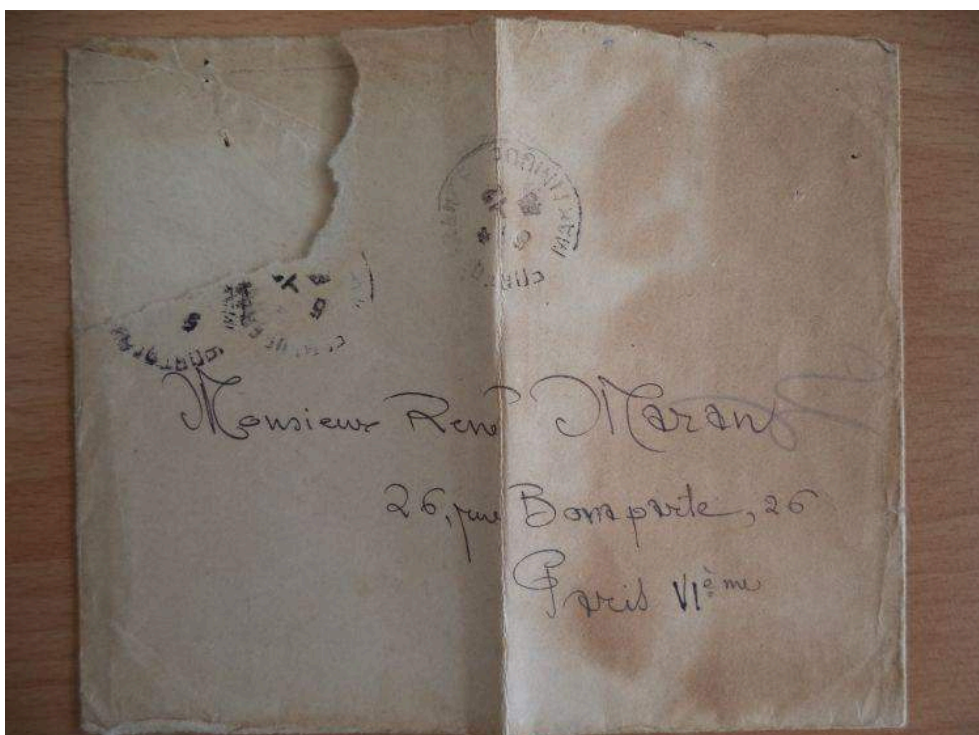 MARTINIQUE
Monsieur René Maran
26, rue Bonaparte, 26
Paris VIème